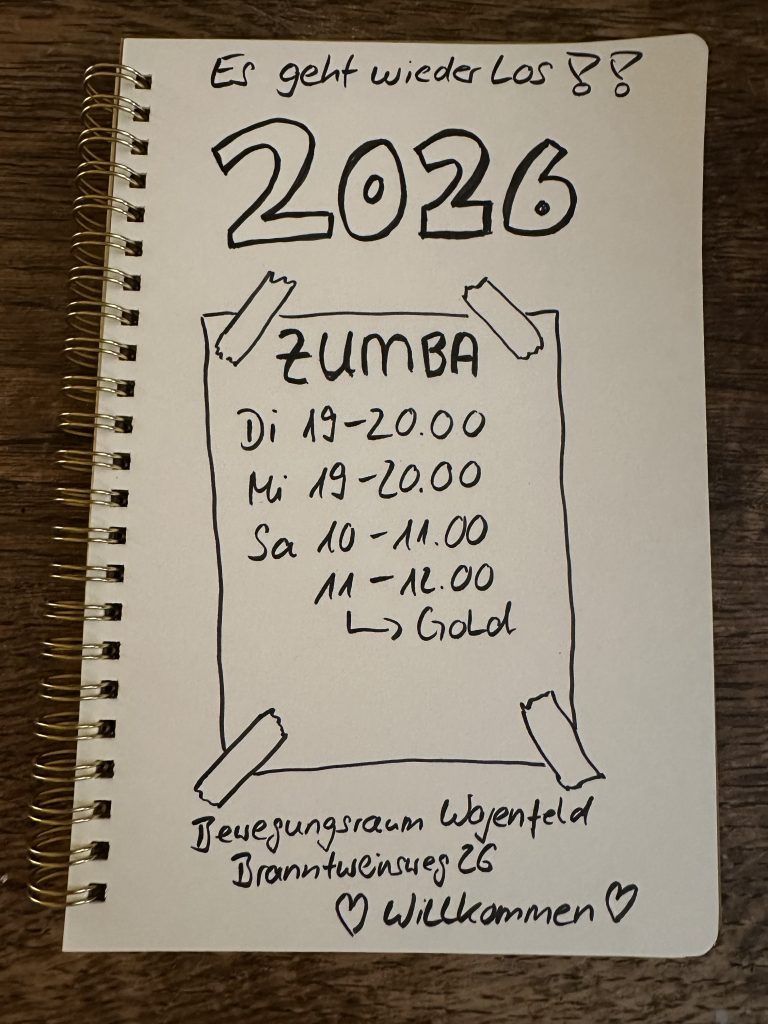 Es geht wieder Los !!
2026
ZUMBA
Di 19-20.00
Mi 19-20.00
Sa 10-11.00
11-12.00
↳ Gold
Bewegungsraum Wojenfeld
Branntweinsweg 26
♡ Willkommen ♡